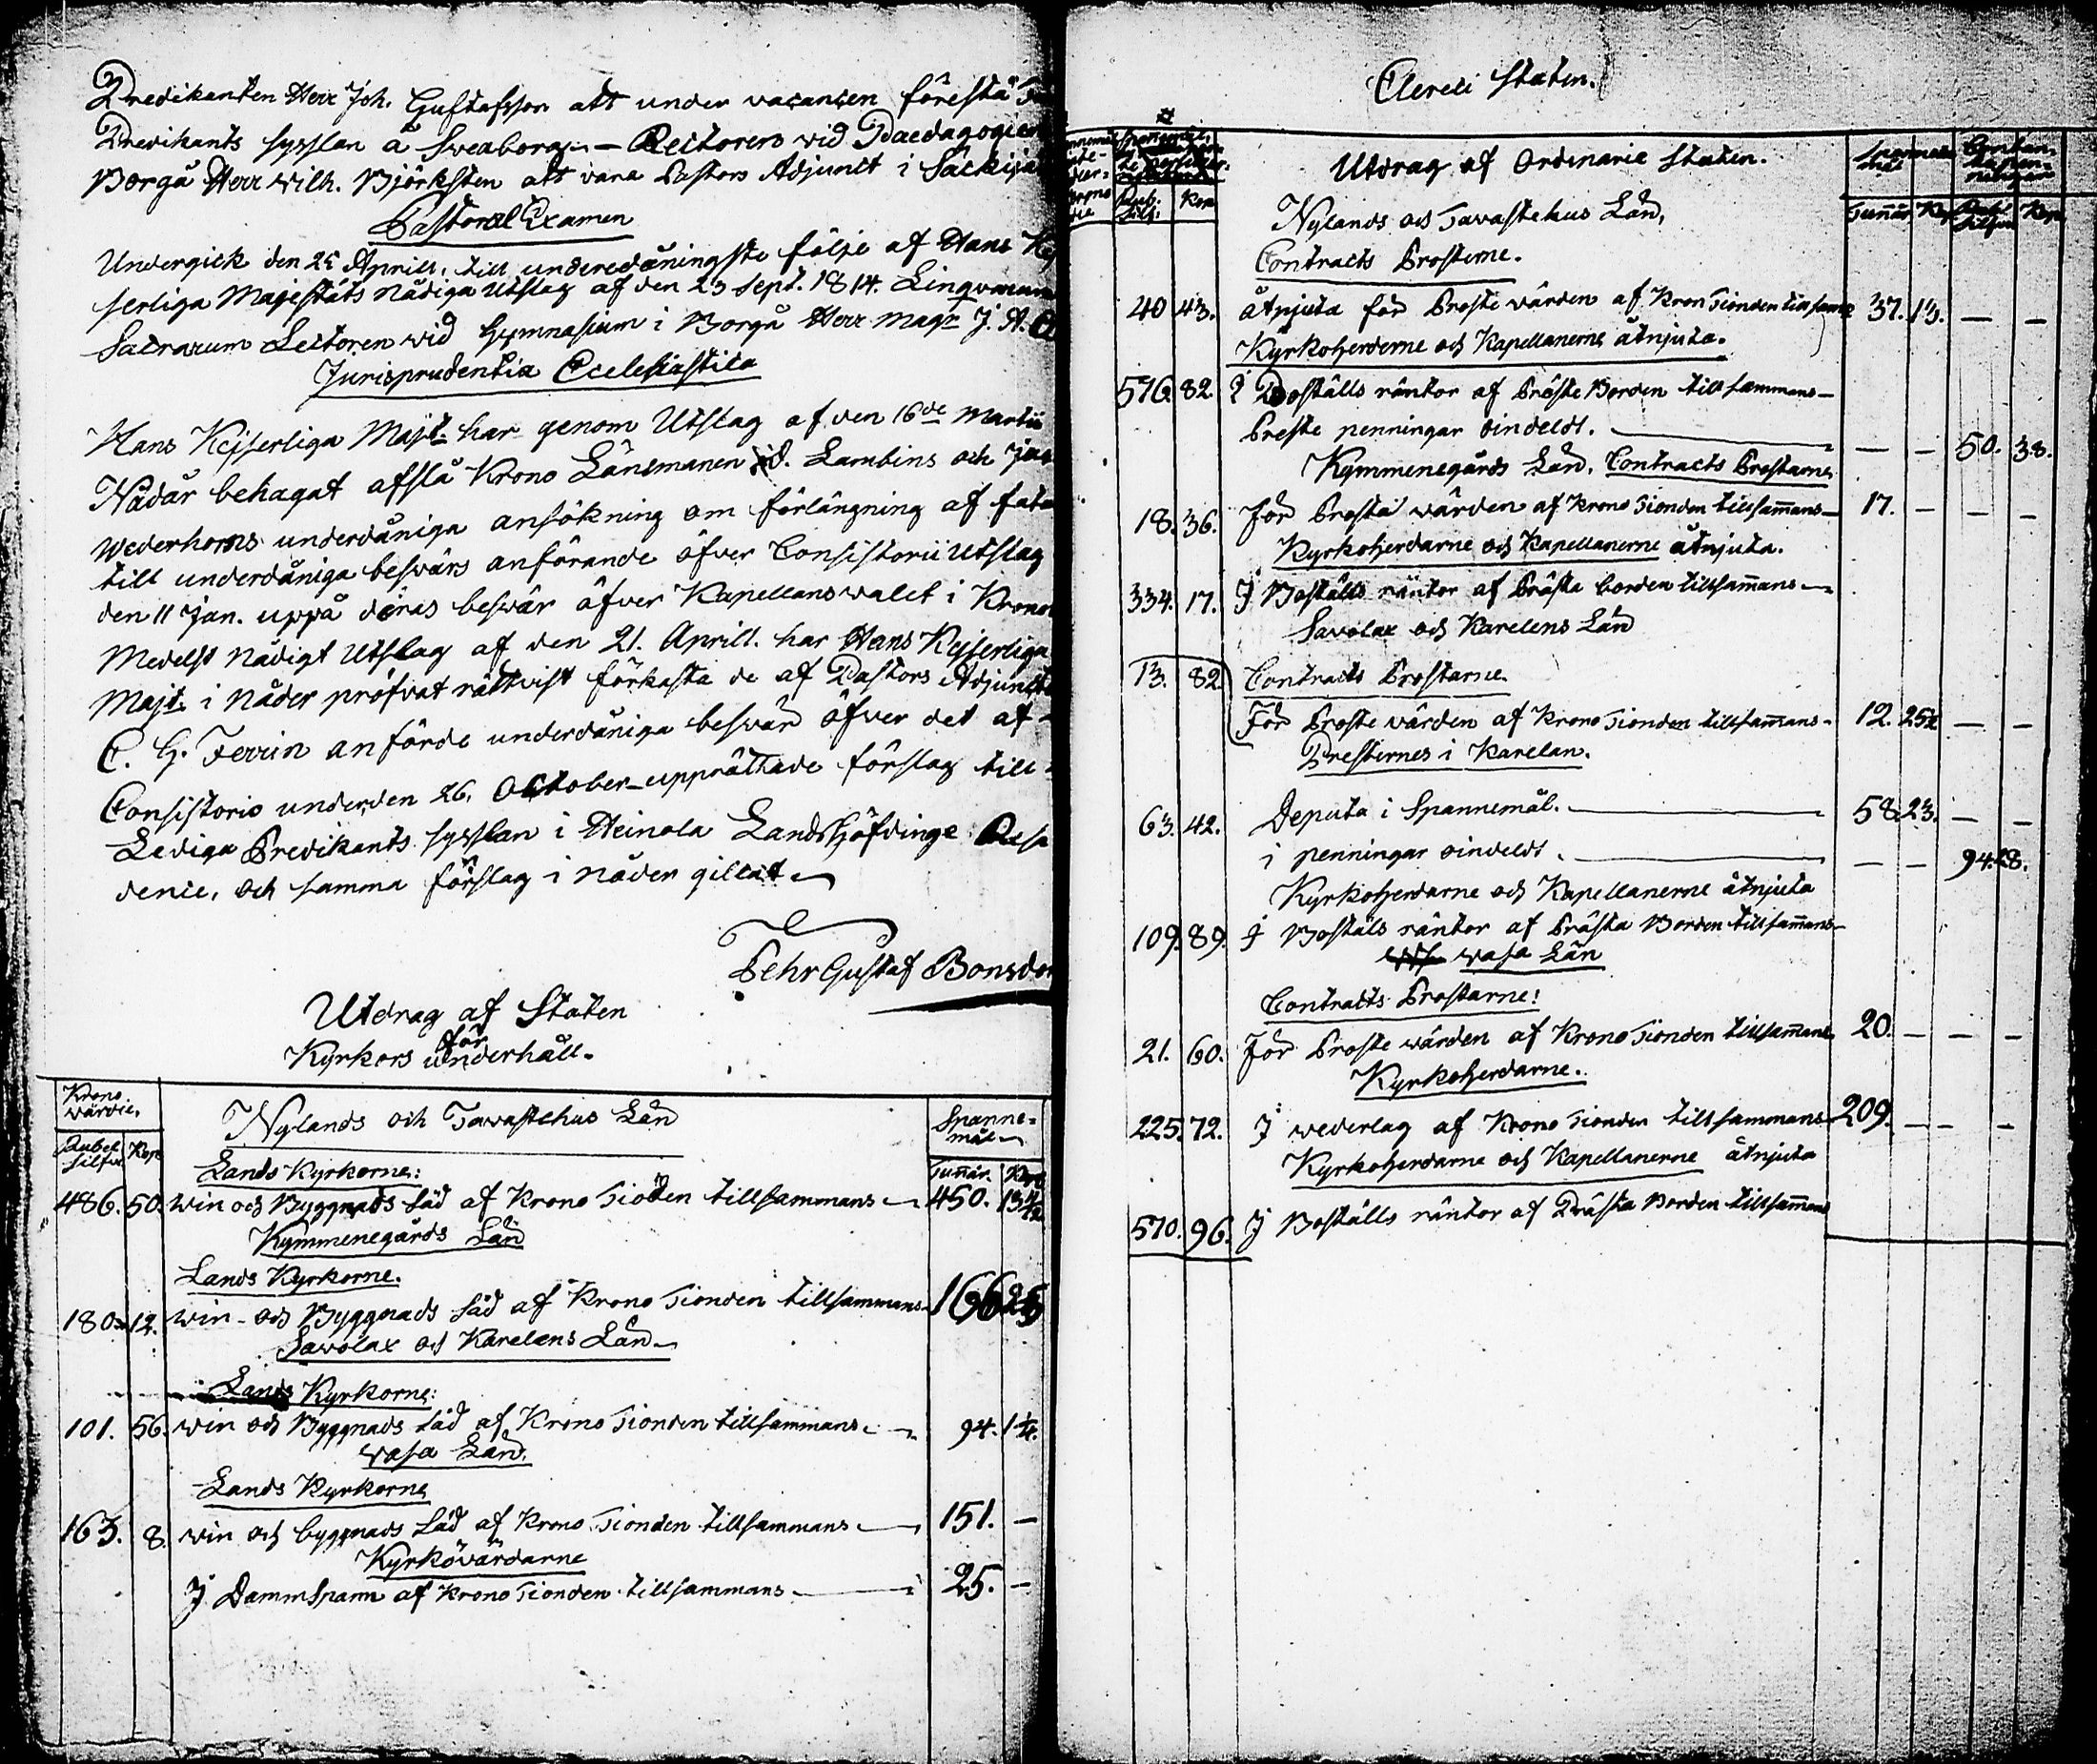 Predikanten Herr Joh. Gustafsson att under vacancen förestå
Predikants sysslan å Sveaborg. — Rectoren wid Paedagogien
Borgå Herr Wilh. Björksten att vara Pastors Adjunct i Säckijär
Pastoral Examen
Undergick den 25 Aprill, till underdåningste följe af Hans Kej
serliga Majestäts nådiga Utslag af den 23 Sept. 1814. Lingvarum
Sacrarum Lectoren wid Gymnasium i Borgå Herr Magr J. A.
Jurisprudentia Ecclesiastica
Hans Kejserliga Majt: har genom Utslag af den 16de Martii
Nådår behagat afslå Krono Länsmanen Lambins och
Wederhorns underdåniga ansökning om förlängning af fata
till underdåniga besvärs anförande öfver Consistorii Utslag
den 11 Jan. uppå deras besvär öfver Kapellans valet i Krono
Medelst Nådigt Utslag af den 21. Aprill. har Hans Kejserliga
Majt. i Nåder pröfvat rättvist förkasta de af Pastors Adjunct
C. G. Ferrin anförde underdåniga besvär öfver det af
Consistorio under den 26. October upprättade förslag till
Lediga Predikants sysslan i Heinola Landshöfdinge Resi
dence, och samma förslag i nåder gillat.
Pehr Gustaf Bonsdor
Utdrag af Staten
för
Kyrkors underhåll.
Krono wärde. Nylands och Tavastehus Län Spanne-mål
Rubel Silfver Kop. Lands Kyrkorne: Tunnår. Kap
486. 50. Win och Byggnads Säd af Krono Tionden tillsammans 450. 13 1/2
Kymmenegårds Län
Lands Kyrkorne.
180. 12. Win- och Byggnads Säd af Krono Tionden tillsammans 166
Savolax och Karelens Län
Lands Kyrkorne:
101. 56. Win och Byggnads Säd af Krono Tionden tillsammans 94. 1 1/4.
Wasa Län.
Lands Kyrkorne
163. 8. Win och byggnads Säd af Krono Tionden tillsammans 151. —
Kyrkövärdarne
J Dammspann af Krono Tionden tillsammans 25. —
Clereci Staten.
Utdrag af Ordinarie Staten. Spannemål Contan-ta pen-ningar
Rub. Silf. Kop Nylands och Tavastehus Län, Tunnår Kap Rubel Silfver Kop.
Contracts Prosterne.
40 43. åtnjuta för Proste wården af Kron Tionden tillsam 37. 13. — —
Kyrkoherderne och Kapellanerne åtnjuta.
576 82. I Boställs räntor af Präste Borden tillsammans —
Preste penningar oindeldt. — — 50. 38.
Kymmenegårds Län. Contracts Prostarne
18. 36. För Prosta wården af Krono Tionden tillsam̅ans — 17. — — —
Kyrkoherdarne och Kapellanerne åtnjuta.
334. 17. J Boställs räntor af Prästa borden tillsam̅ans —
Savolax och Karelens Län
13. 82 Contracts Prostarne.
För Proste wården af Krono Tionden tillsam̅ans 12. 25 1/2 — —
Presternes i Karelan.
63. 42. Deputa i Spannemål. 58. 23. — —
i penningar oindeldt. — — 94. 28.
Kyrkoherdarne och Kapellanerne åtnjuta
109. 89. J Boställs räntor af Prästa Borden tillsam̅ans
Wasa Län
Contracts Prostarne:
21. 60. För Proste wården af Krono Tionden tillsam̅ans 20. — — —
Kyrkoherdarne.
225. 72. J wederlag af Krono Tionden tillsammans 209. — — —
Kyrkoherdarne och Kapellanerne åtnjuta
570. 96. J Boställs räntor af Prästa Borden tillsam̅ans